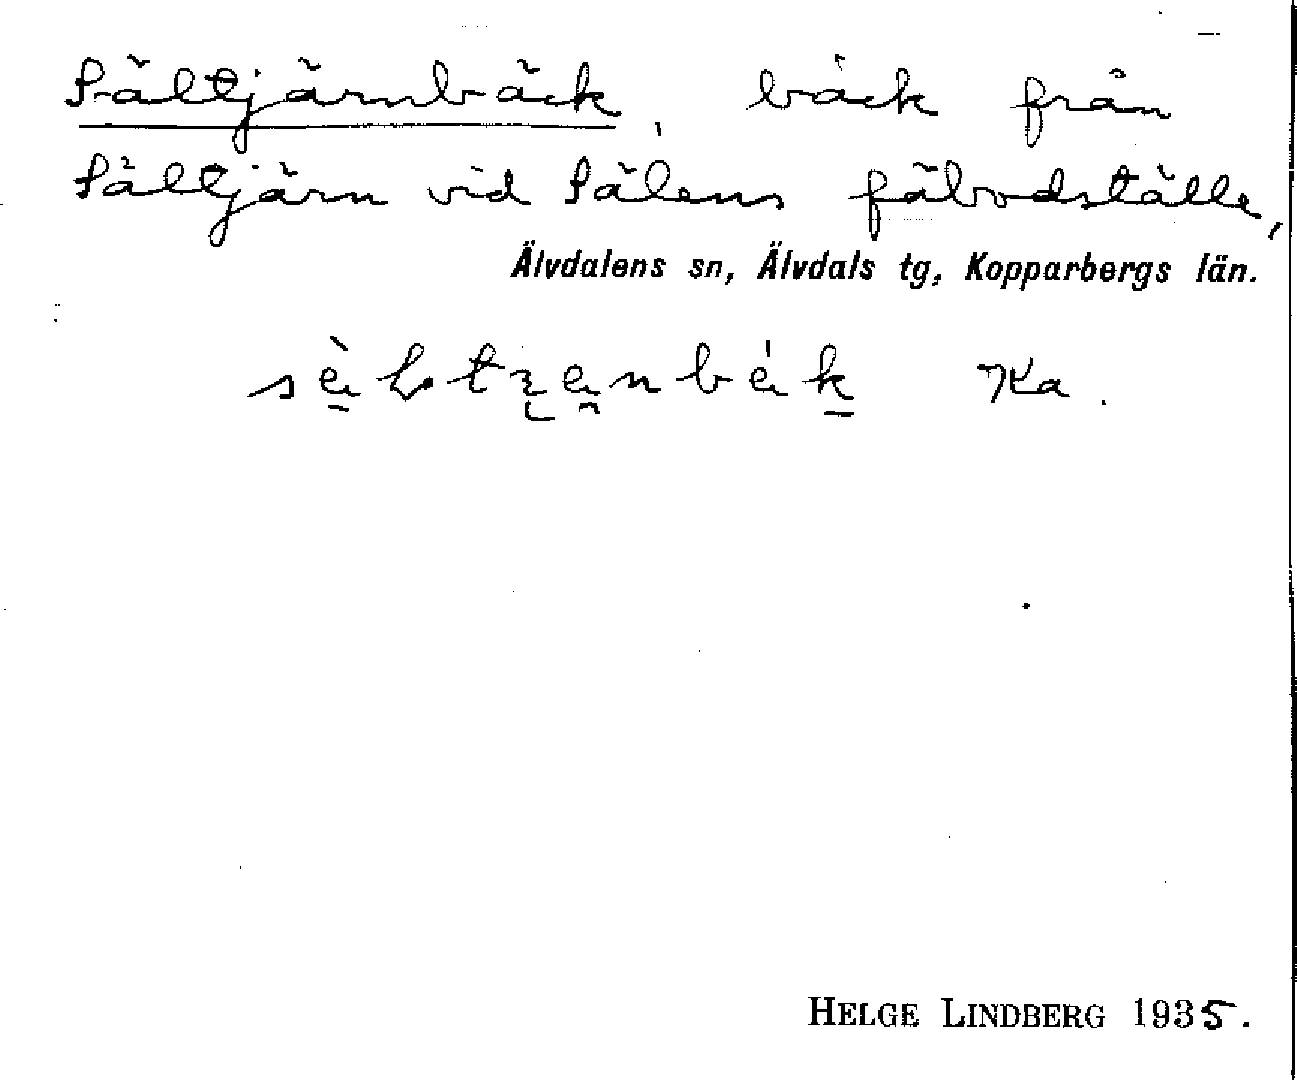 Sältjärnbäck, bäck från
Sältjärn vid Sälens fäbodställe,
Älvdalens sn, Älvdals tg, Kopparbergs län.
Ka.
HELGE LINDBERG 1935.